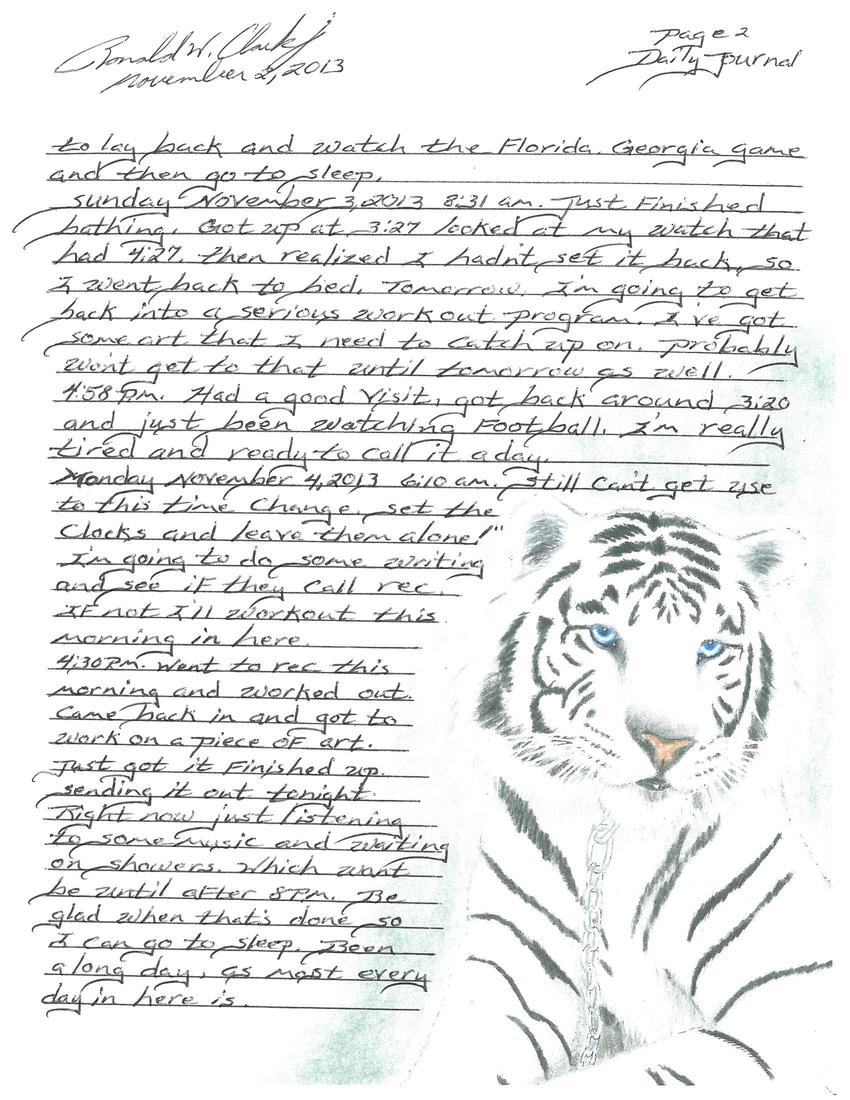 Ronald W. Clark Jr
November 2, 2013
Page 2
Daily Journal
to lay back and watch the Florida. Georgia game
and then go to sleep.
Sunday November 3, 2013 8:31 am. Just Finished
bathing. Got up at 3:27 looked at my watch that
had 4:27. then realized I hadn't set it back, so
I went back to bed. Tomorrow. I'm going to get
back into a serious workout program. I've got
some art that I need to catch up on. probably
won't get to that until tomorrow as well.
4:58 pm. Had a good visit, got back around 3:20
and just been watching Football. I'm really
tired and ready to call it a day.
Monday November 4, 2013 6:10 am. Still Can't get use
to this time Change. set the
Clocks and leave them alone!"
I'm going to do some writing
and see if they Call rec.
IF not I'll workout this
morning in here.
4:30 PM. Went to rec this
morning and worked out.
Came back in and got to
work on a piece OF art.
Just got it Finished up.
sending it out tonight.
Right now just listening
to some music and waiting
on showers. Which want
be until after 8 PM. Be
glad when that's done so
I can go to sleep. Been
a long day, as most every
day in here is.